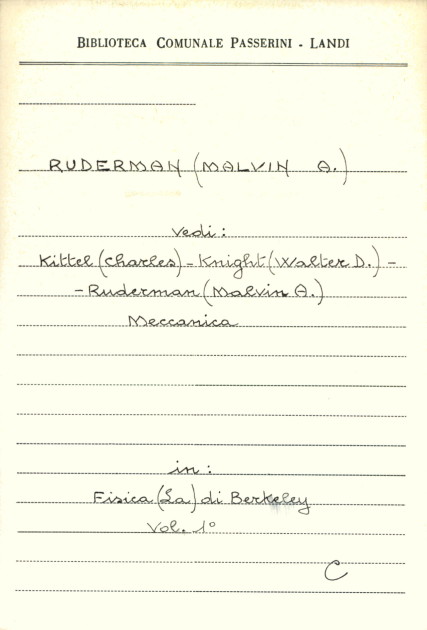 BIBLIOTECA COMUNALE PASSERINI - LANDI
RUDERMAN (MALVIN A.)
vedi:
Kittel (Charles) - Knight (Walter D.) -
- Ruderman (Malvin A.)
Meccanica
in:
Fisica (La) di Berkeley
Vol. 1°
C